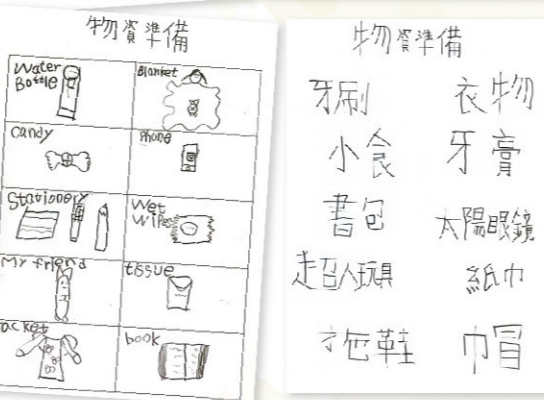 物資準備
Water Bottle
Blanket
candy
Phone
Stationery
Wet
Wipes
My friend
tissue
acket
book
物資準備
牙刷 衣物
小食 牙膏
書包 太陽眼鏡
超人玩具 紙巾
鞋 帽